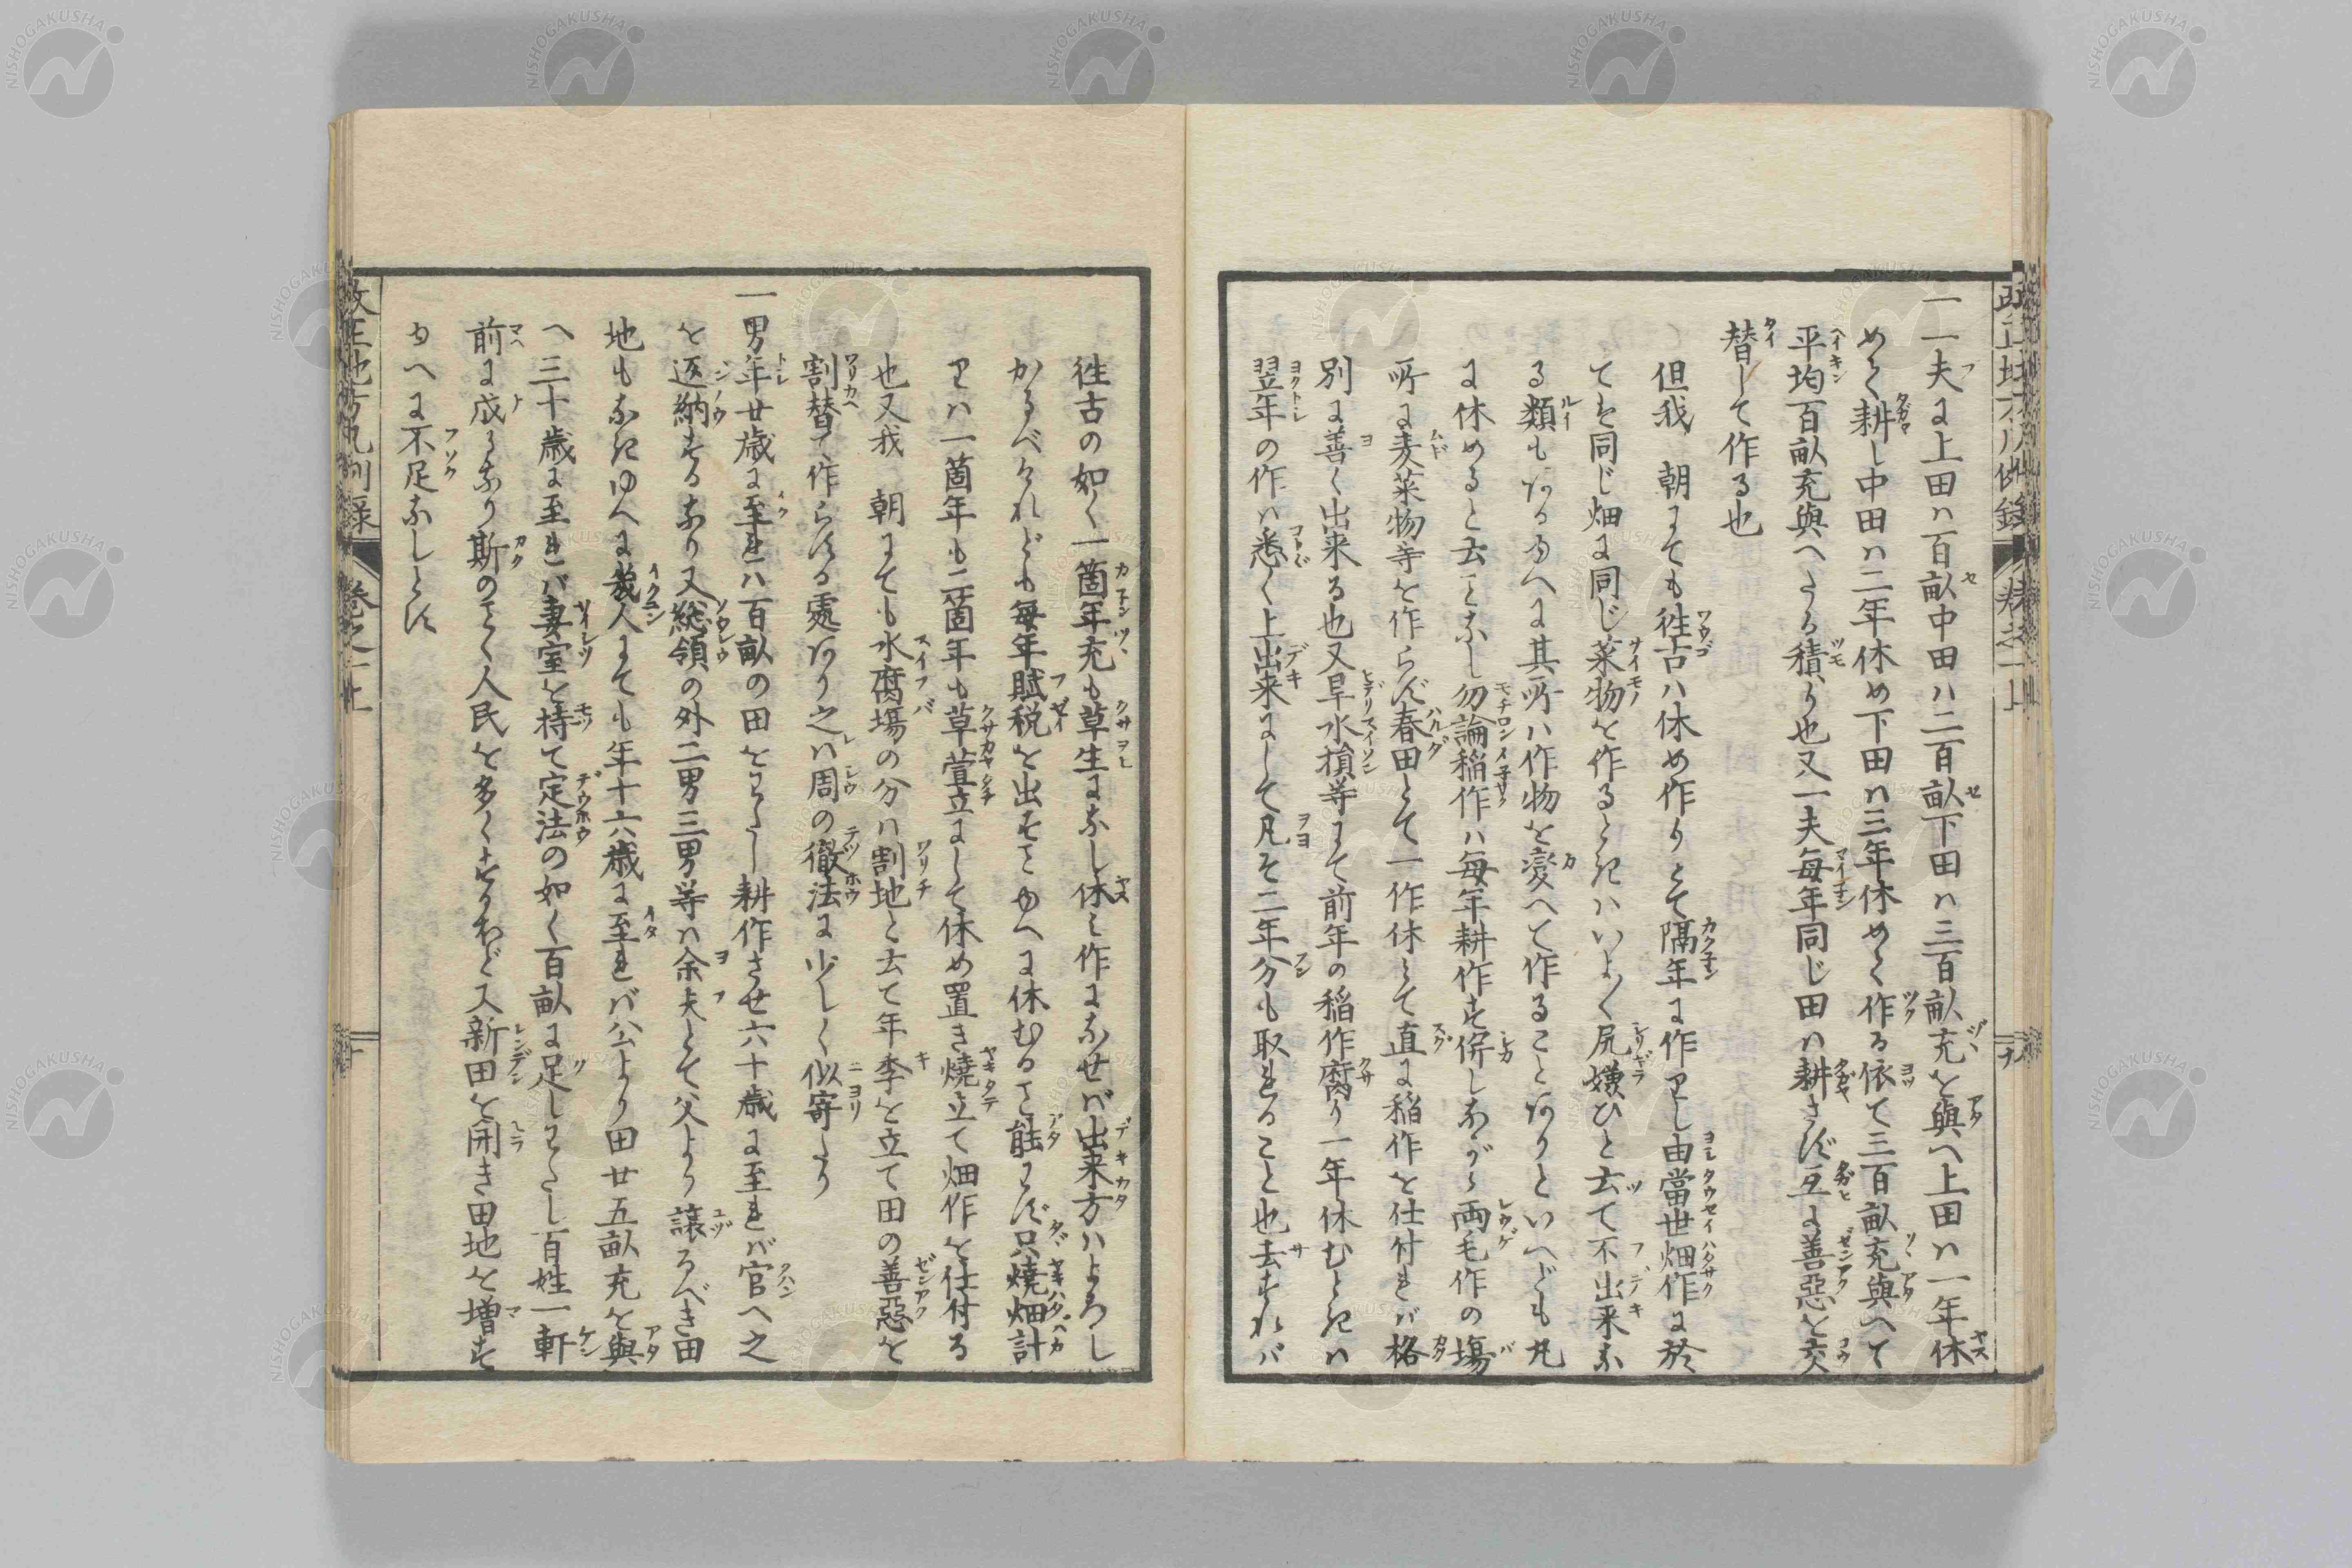 一一夫に上田ハ百畝中田ハ二百畝下田ハ三百畝充を與へ上田ハ一年休
めて耕し中田ハ二年休め下田ハ三年休めて作る依て三百畝充與へて
平均百畝充與へたる積り也又一夫毎年同じ田ハ耕さず互に善惡を交
替して作る也
但我 朝にても徃古ハ休め作りとて隔年に作りし由當世畑作に於
ても同じ畑に同じ菜物を作るときハいよく尻嫌ひと云て不出来な
る類もある由へに其所ハ作物を変へて作ることありといへども凡
に休めると云ことなし勿論稲作ハ毎年耕作す併しながら両毛作の場
所に麦菜物等を作らず春田とて一作休とて直に稲作を仕付れバ格
別に善く出来る也又旱水損等にて前年の稲作腐り一年休むときハ
翌年の作ハ悉く上出来にして凡そ二年分も取れること也去すれバ
徃古の如く一箇年充も草生になし休ミ作になせバ出来方ハよろし
かるべけれども毎年賦税を出すことゆへに休むること能はず只燒畑計
りハ一箇年も二箇年も草萱立にして休め置き燒立て畑作を仕付る
也又我 朝にても水腐場の分ハ割地と云て年季を立て田の善惡を
割替て作らする處あり之ハ周の徹法に少しく似寄たり
一男年廿歳に至れハ百畝の田をわたし耕作させ六十歳に至れバ官へ之
を返納するなり又総領の外二男三男等ハ余夫とて父より譲るべき田
地もなきゆへに幾人にても年十六歳に至れバ公より田廿五畝充を與
へ三十歳に至れバ妻室を持て定法の如く百畝に足しわたし百姓一軒
前に成るなり斯のごとく人民を多くすれほど又新田を開き田地を増す
由へに不足なしとす
改正地方凡例録 巻之一上